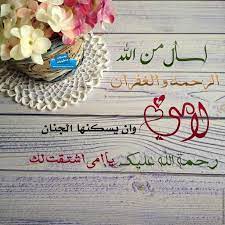 اسأل من الله
الرحمة والغفران
لامي
وان يسكنها الجنان
رحمة الله عليك يا امي اشتقت لك